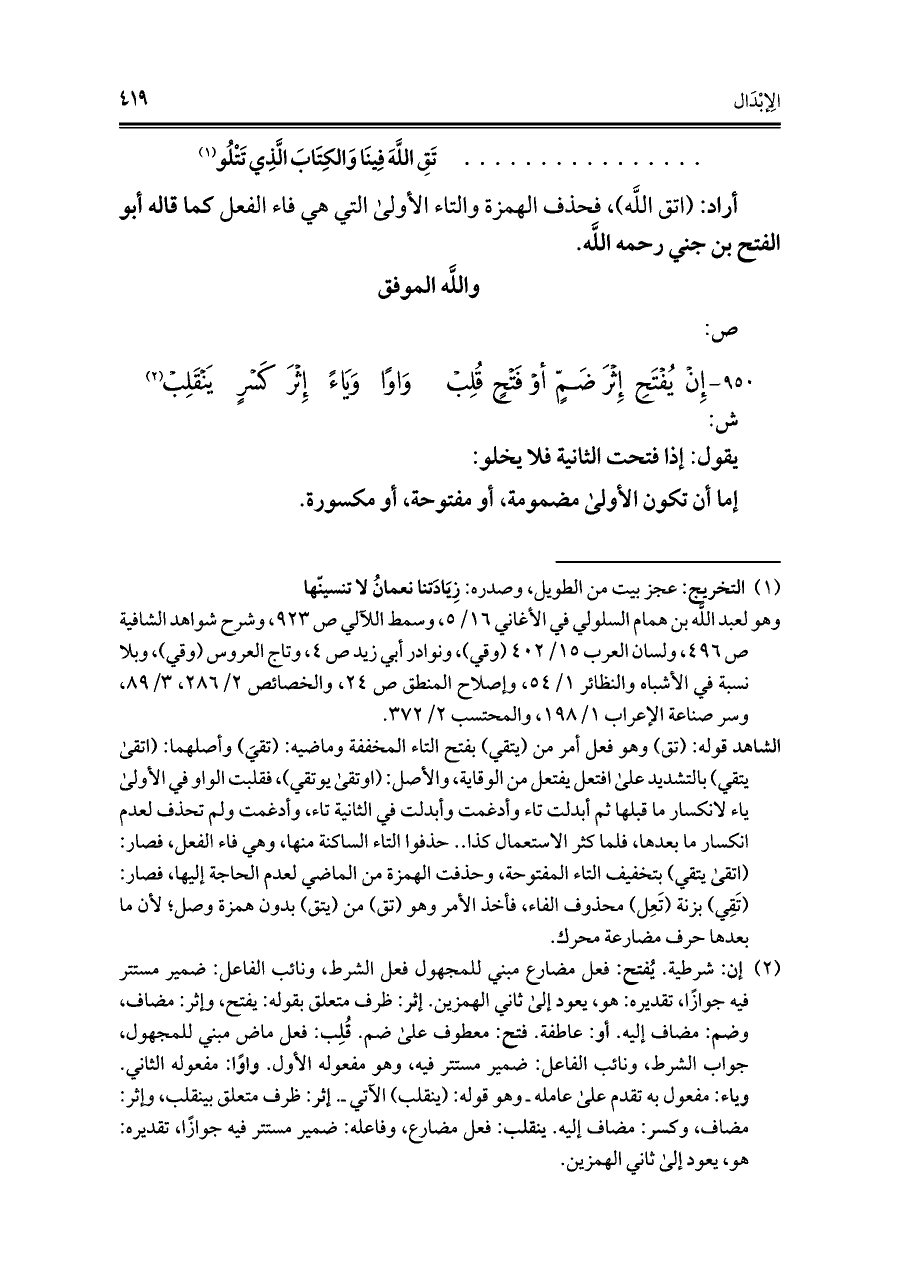 الإِبْدَال ٤١٩
. . . . . . . . . . . . . . . . تَقِ اللَّهَ فِينَا وَالكِتَابَ الَّذِي تَتْلُو(١)
أراد: (اتق اللَّه)، فحذف الهمزة والتاء الأولىٰ التي هي فاء الفعل كما قاله أبو
الفتح بن جني رحمه اللَّه.
واللَّه الموفق
ص:
٩٥٠- إِنْ يُفْتَحِ إِثْرَ ضَمٍّ أوْ فَتْحٍ قُلِبْ وَاوًا وَيَاءً إِثْرَ كَسْرٍ يَنْقَلِبْ(٢)
ش:
يقول: إذا فتحت الثانية فلا يخلو:
إما أن تكون الأولىٰ مضمومة، أو مفتوحة، أو مكسورة.
(١) التخريج: عجز بيت من الطويل، وصدره: زِيَادَتنا نعمانُ لا تنسينّها
وهو لعبد اللَّه بن همام السلولي في الأغاني ١٦/ ٥، وسمط اللآلي ص ٩٢٣، وشرح شواهد الشافية
ص ٤٩٦، ولسان العرب ١٥/ ٤٠٢ (وقي)، ونوادر أبي زيد ص ٤، وتاج العروس (وقي)، وبلا
نسبة في الأشباه والنظائر ١/ ٥٤، وإصلاح المنطق ص ٢٤، والخصائص ٢/ ٢٨٦، ٣/ ٨٩،
وسر صناعة الإعراب ١/ ١٩٨، والمحتسب ٢/ ٣٧٢.
الشاهد قوله: (تق) وهو فعل أمر من (يتقي) بفتح التاء المخففة وماضيه: (تقيَ) وأصلهما: (اتقىٰ
يتقي) بالتشديد علىٰ افتعل يفتعل من الوقاية، والأصل: (اوتقىٰ يوتقي)، فقلبت الواو في الأولىٰ
ياء لانكسار ما قبلها ثم أبدلت تاء وأدغمت وأبدلت في الثانية تاء، وأدغمت ولم تحذف لعدم
انكسار ما بعدها، فلما كثر الاستعمال كذا.. حذفوا التاء الساكنة منها، وهي فاء الفعل، فصار:
(اتقىٰ يتقي) بتخفيف التاء المفتوحة، وحذفت الهمزة من الماضي لعدم الحاجة إليها، فصار:
(تَقِي) بزنة (تَعِل) محذوف الفاء، فأخذ الأمر وهو (تق) من (يتق) بدون همزة وصل؛ لأن ما
بعدها حرف مضارعة محرك.
(٢) إن: شرطية. يُفتح: فعل مضارع مبني للمجهول فعل الشرط، ونائب الفاعل: ضمير مستتر
فيه جوازًا، تقديره: هو، يعود إلىٰ ثاني الهمزين. إثر: ظرف متعلق بقوله: يفتح، وإثر: مضاف،
وضم: مضاف إليه. أو: عاطفة. فتح: معطوف علىٰ ضم. قُلِب: فعل ماض مبني للمجهول،
جواب الشرط، ونائب الفاعل: ضمير مستتر فيه، وهو مفعوله الأول. واوًا: مفعوله الثاني.
وياء: مفعول به تقدم علىٰ عامله ـ وهو قوله: (ينقلب) الآتي ـ. إثر: ظرف متعلق بينقلب، وإثر:
مضاف، وكسر: مضاف إليه. ينقلب: فعل مضارع، وفاعله: ضمير مستتر فيه جوازًا، تقديره:
هو، يعود إلىٰ ثاني الهمزين.